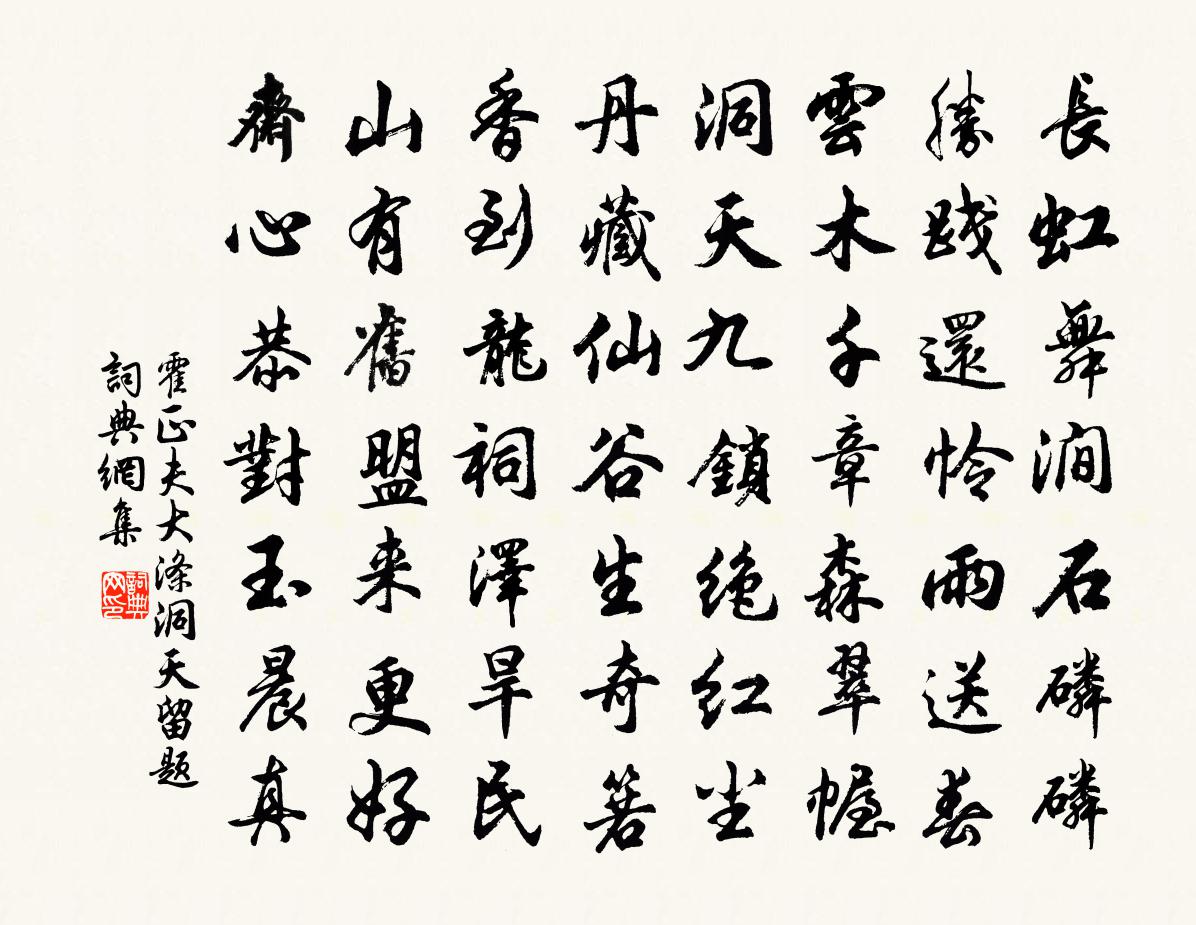 長虹舞澗石磷磷
勝踐還怜雨送春
雲木千章森翠幄
洞天九鎖絶红尘
丹藏仙谷生奇箬
香到龍祠澤旱民
山有舊盟来更好
齋心恭對玉晨真
霍正夫大滌洞天留题
詞典網集
詞典网印